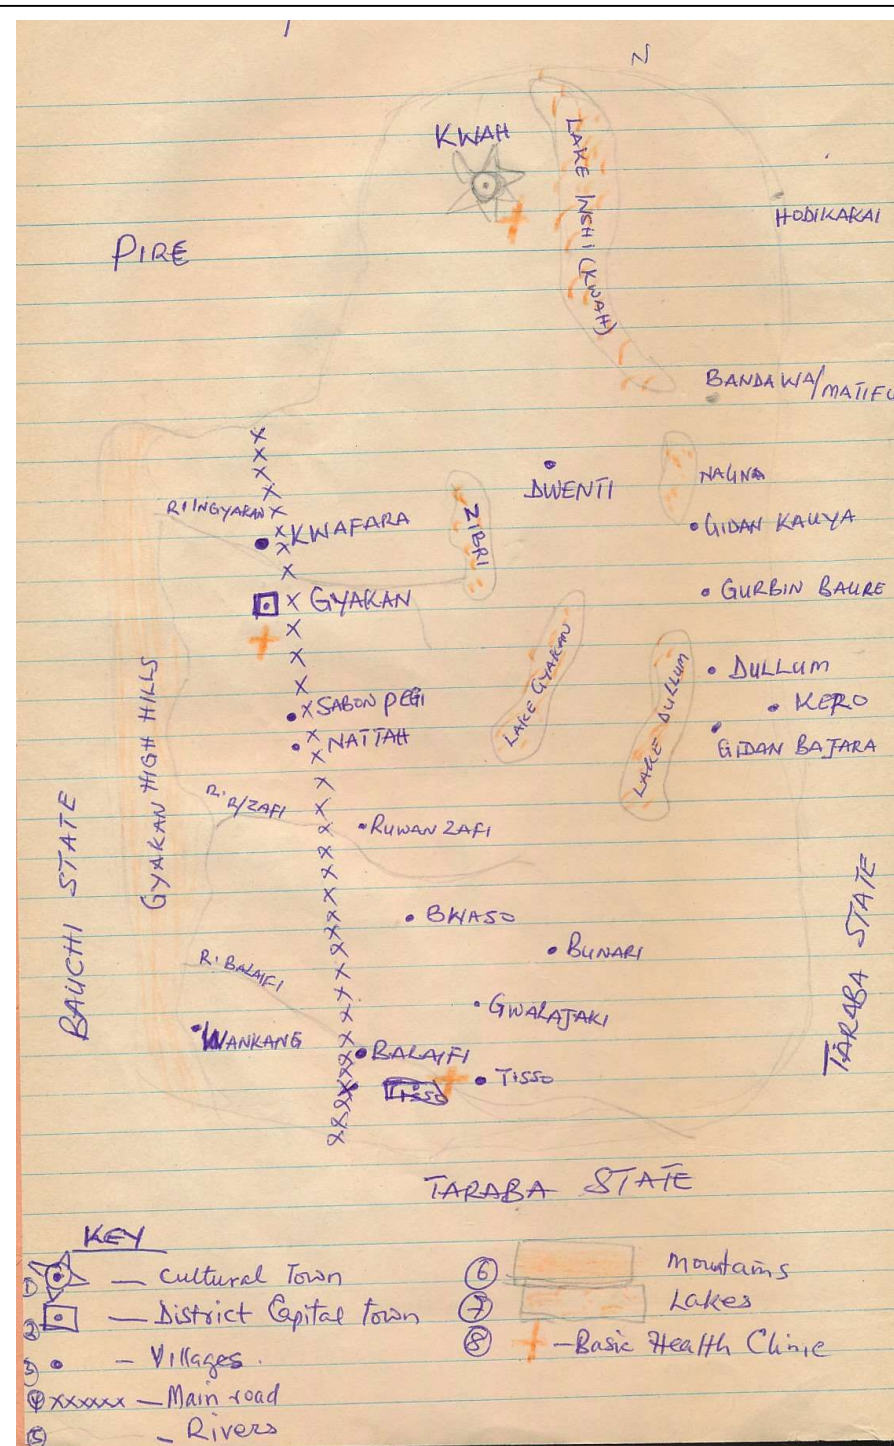 N
KWAH
LAKE INSHI (KWAH)
HODIKAKAI
PIRE
BANDAWA/MATIFU
DWENTI
NAUNA
R. INGYAKAN
KWAFARA
ZIBRI
GIDAN KAUYA
GYAKAN
GURBIN BAURE
LAKE GYAKAN
LAKE DULLUM
DULLUM
KERO
SABON PEGI
NATTAH
GIDAN BAJARA
GYAKAN HIGH HILLS
BAUCHI STATE
R. R/ZAFI
RUWAN ZAFI
TARABA STATE
BWASO
BUNARI
R. BALAIFI
GWALAJAKI
WANKANG
BALAIFI
TISSO
TARABA STATE
KEY
① — Cultural Town
② — District Capital Town
③ • – Villages.
④ xxxxxx — Main road
⑤ – Rivers
⑥ Mountains
⑦ Lakes
⑧ + – Basic Health Clinic